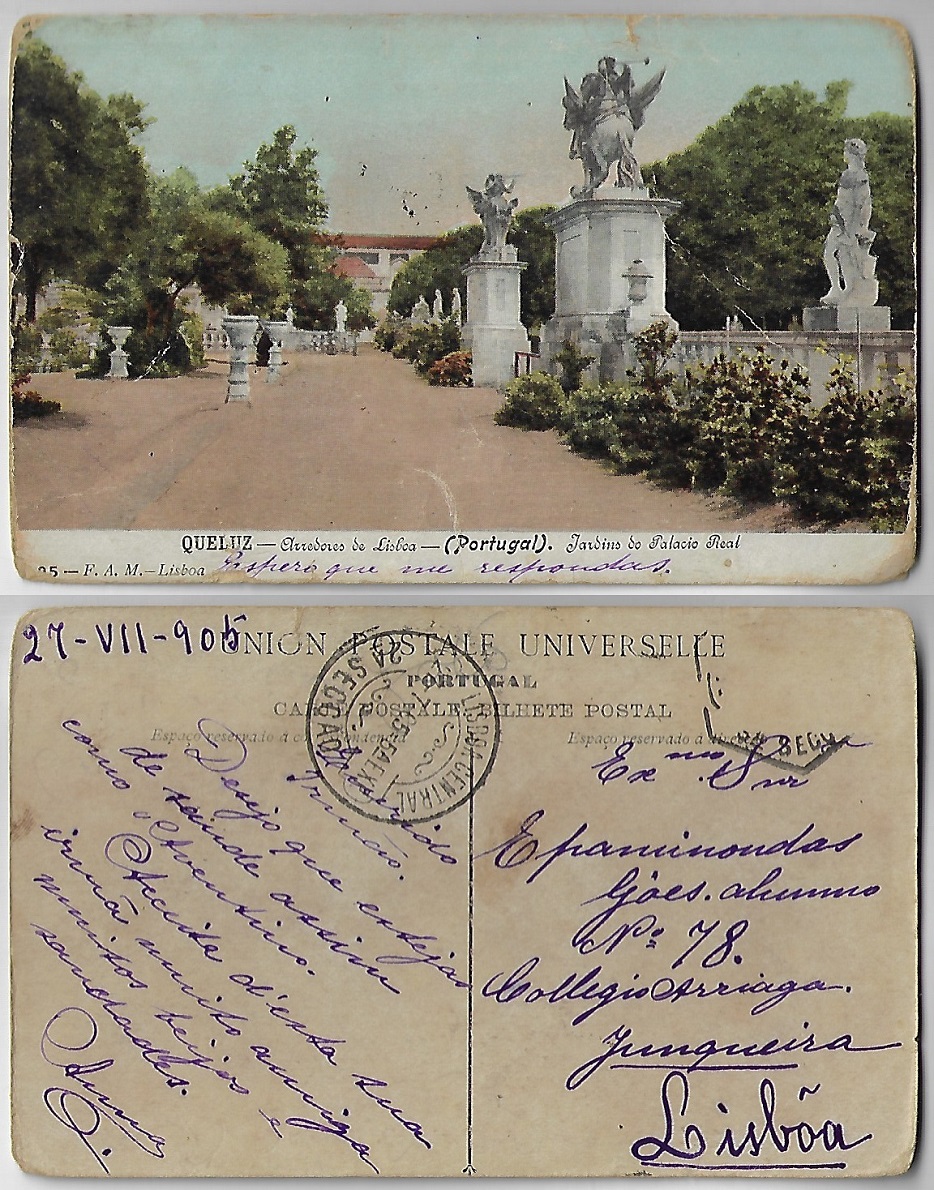 QUELUZ — Arredores de Lisboa — (Portugal). Jardins do Palacio Real
25 — F. A. M. — Lisboa Espero que me respondas.
27-VII-905
UNION POSTALE UNIVERSELLE
PORTUGAL
CARTE POSTALE BILHETE POSTAL
Espaço reservado á correspondencia
Espaço reservado á direcção
LISBOA CENTRAL
2A SECÇÃO
Querido
irmão.
Desejo que estejas
de saude assim
como o Aventino.
Acceita d'esta tua
irmã muito amiga
muitos beijos e
saudades.
Anna
G.
Exmo Snr
Epaminondas
Góes. alumno
No 78.
Collegio Arriaga.
Junqueira
Lisbôa